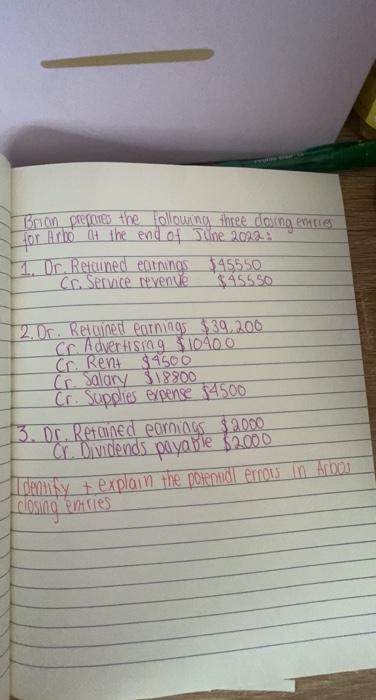 Brian prepares the following three closing entries
for Arbo at the end of June 2022:
1. Dr. Retained earnings $45550
Cr. Service revenue $45550
2. Dr. Retained earnings $39,200
Cr. Advertising $10400
Cr. Rent $4500
Cr. Salary $18800
Cr. Supplies expense $4500
3. Dr. Retained earnings $2000
Cr. Dividends payable $2000
Identify + explain the potential errors in Arbos
closing entries